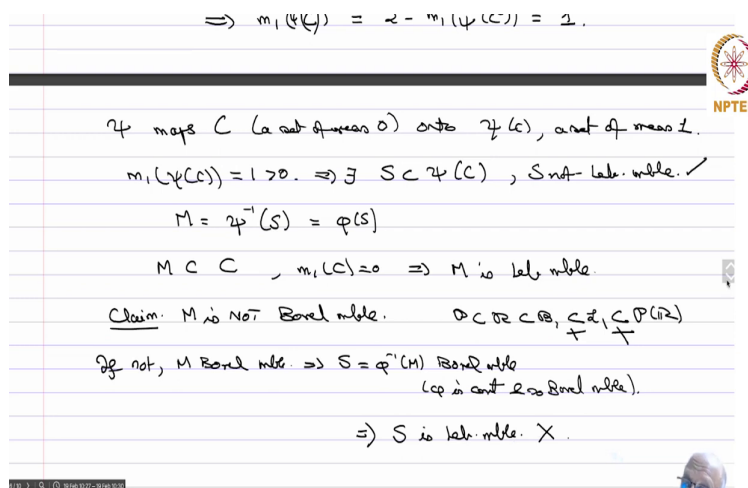 ⇒ m₁(ψ(C)) = 2 - m₁(ψ(C^c)) = 1.
NPTEL
ψ maps C (a set of meas 0) onto ψ(C), a set of meas 1.
m₁(ψ(C)) = 1 > 0. ⇒ ∃ S ⊂ ψ(C), S not Leb. mble. ✓
M = ψ⁻¹(S) = φ(S)
M ⊂ C, m₁(C) = 0 ⇒ M is Leb mble.
Claim. M is NOT Borel mble. P ⊂ R ⊂ B₁ ⊊ L₁ ⊊ P(ℝ)
If not, M Borel mble. ⇒ S = φ⁻¹(M) Borel mble
(φ is cont & so Borel mble).
⇒ S is Leb. mble. X.